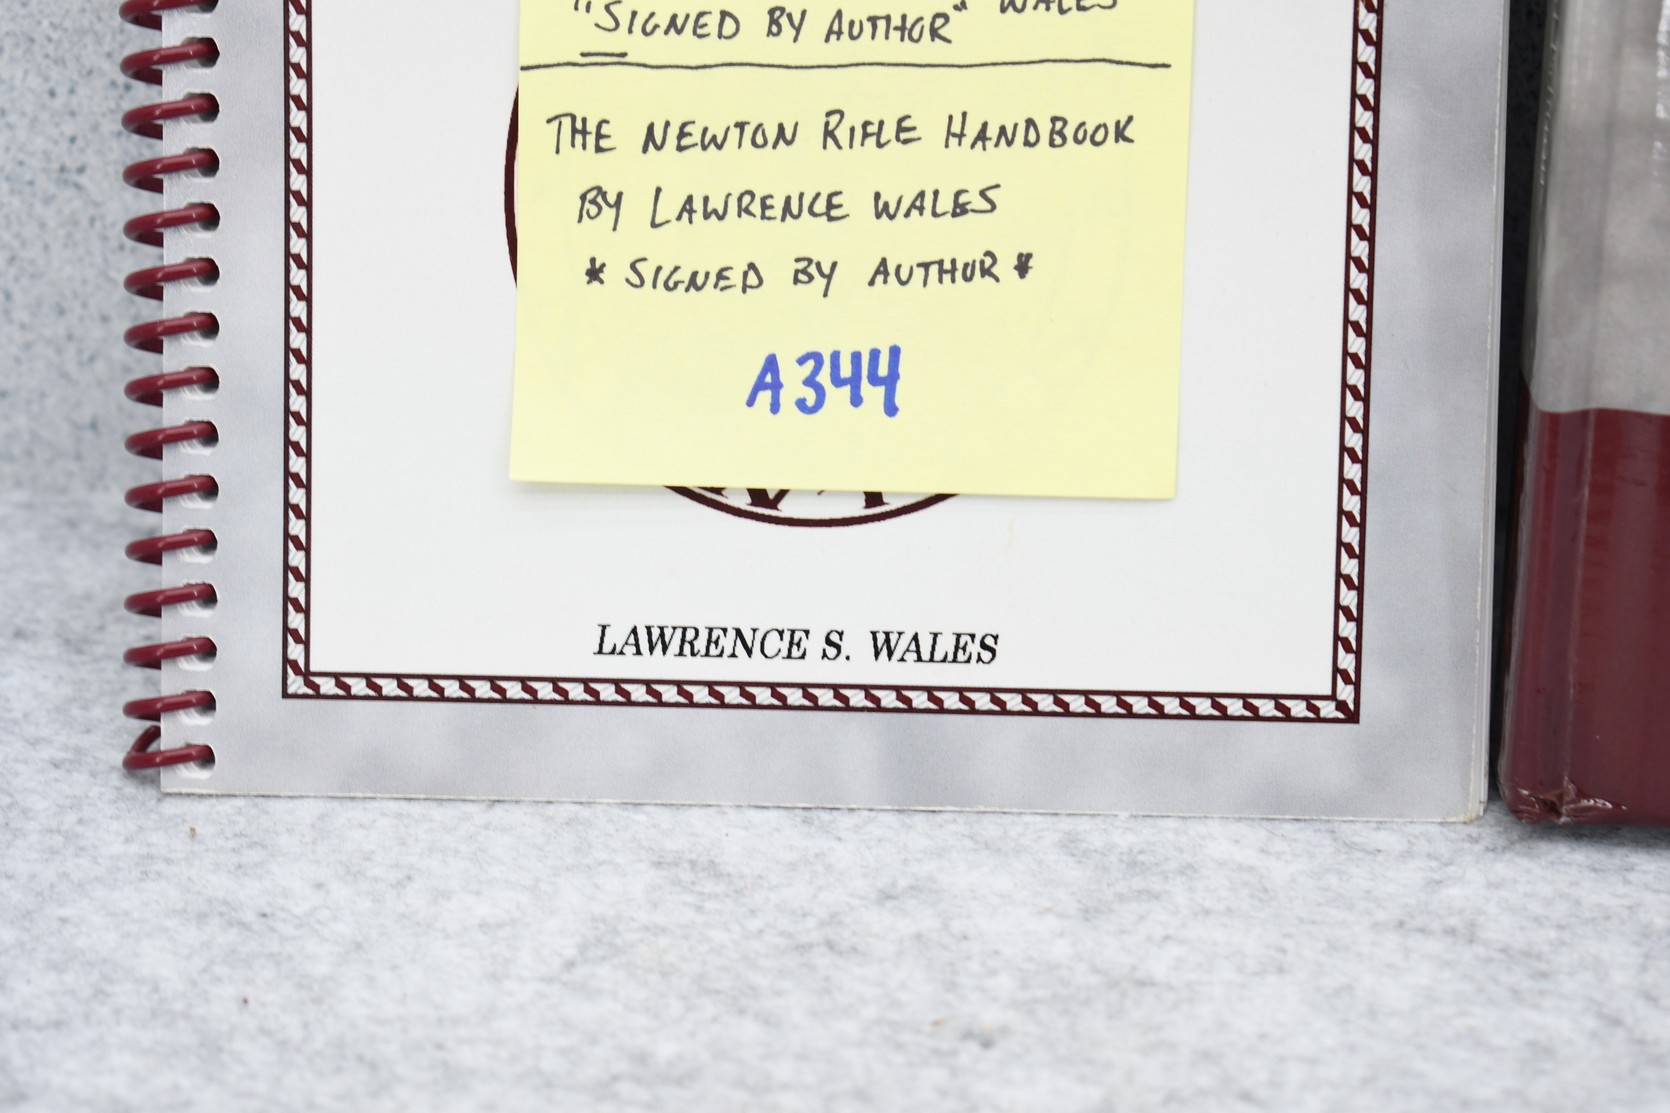 "SIGNED BY AUTHOR" WALES
THE NEWTON RIFLE HANDBOOK
BY LAWRENCE WALES
* SIGNED BY AUTHOR *
A344
LAWRENCE S. WALES